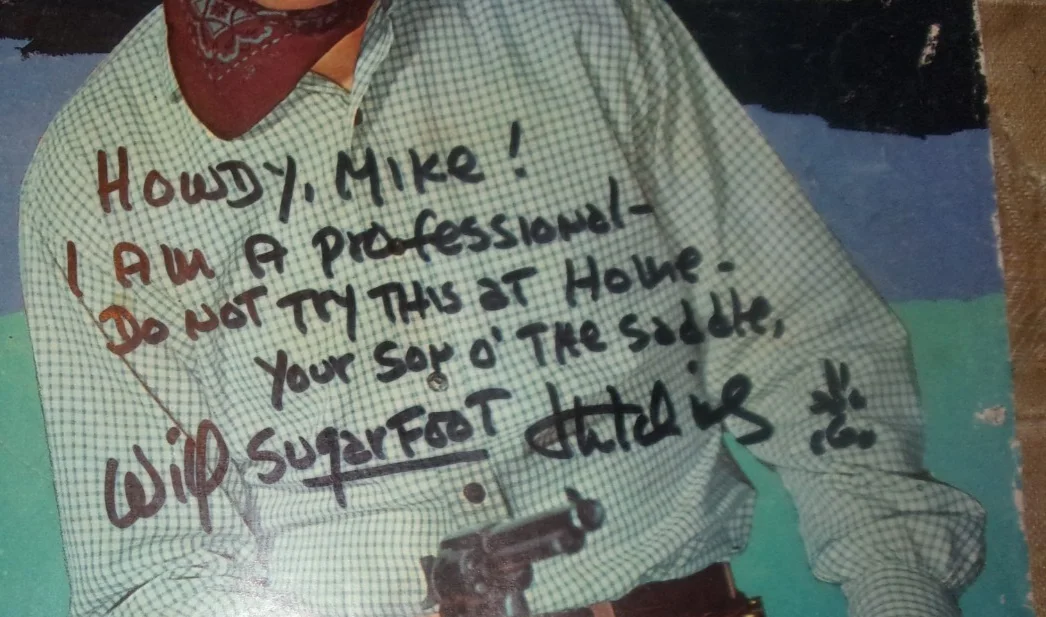 Howdy, Mike!
I AM A Professional-
Do NOT TRY THIS aT Home.
Your Son o' THe Saddle,
Will SugarFooT Hutchins